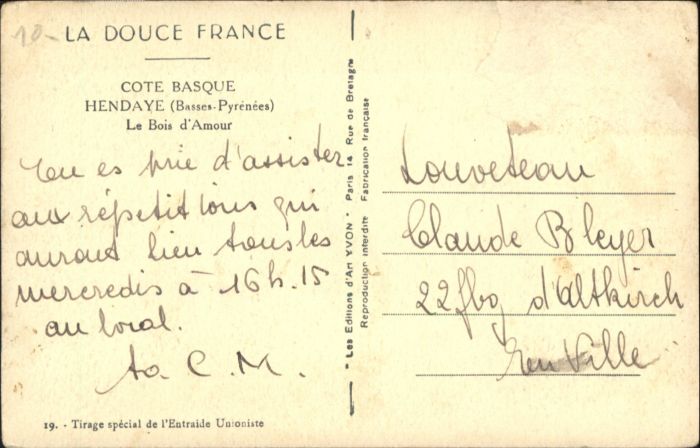 10-
LA DOUCE FRANCE
COTE BASQUE
HENDAYE (Basses-Pyrénées)
Le Bois d'Amour
Tu es prié d'assister
aux répetitions qui
auront lieu tous les
mercredis à 16h.15
au local.
ta C.M.
19. - Tirage spécial de l'Entraide Unioniste
"Les Editions d'Art YVON" Paris 14 Rue de Bretagne
Reproduction interdite Fabrication française
Louveteau
Claude Bleyer
22 fbg d'altkirch
En Ville